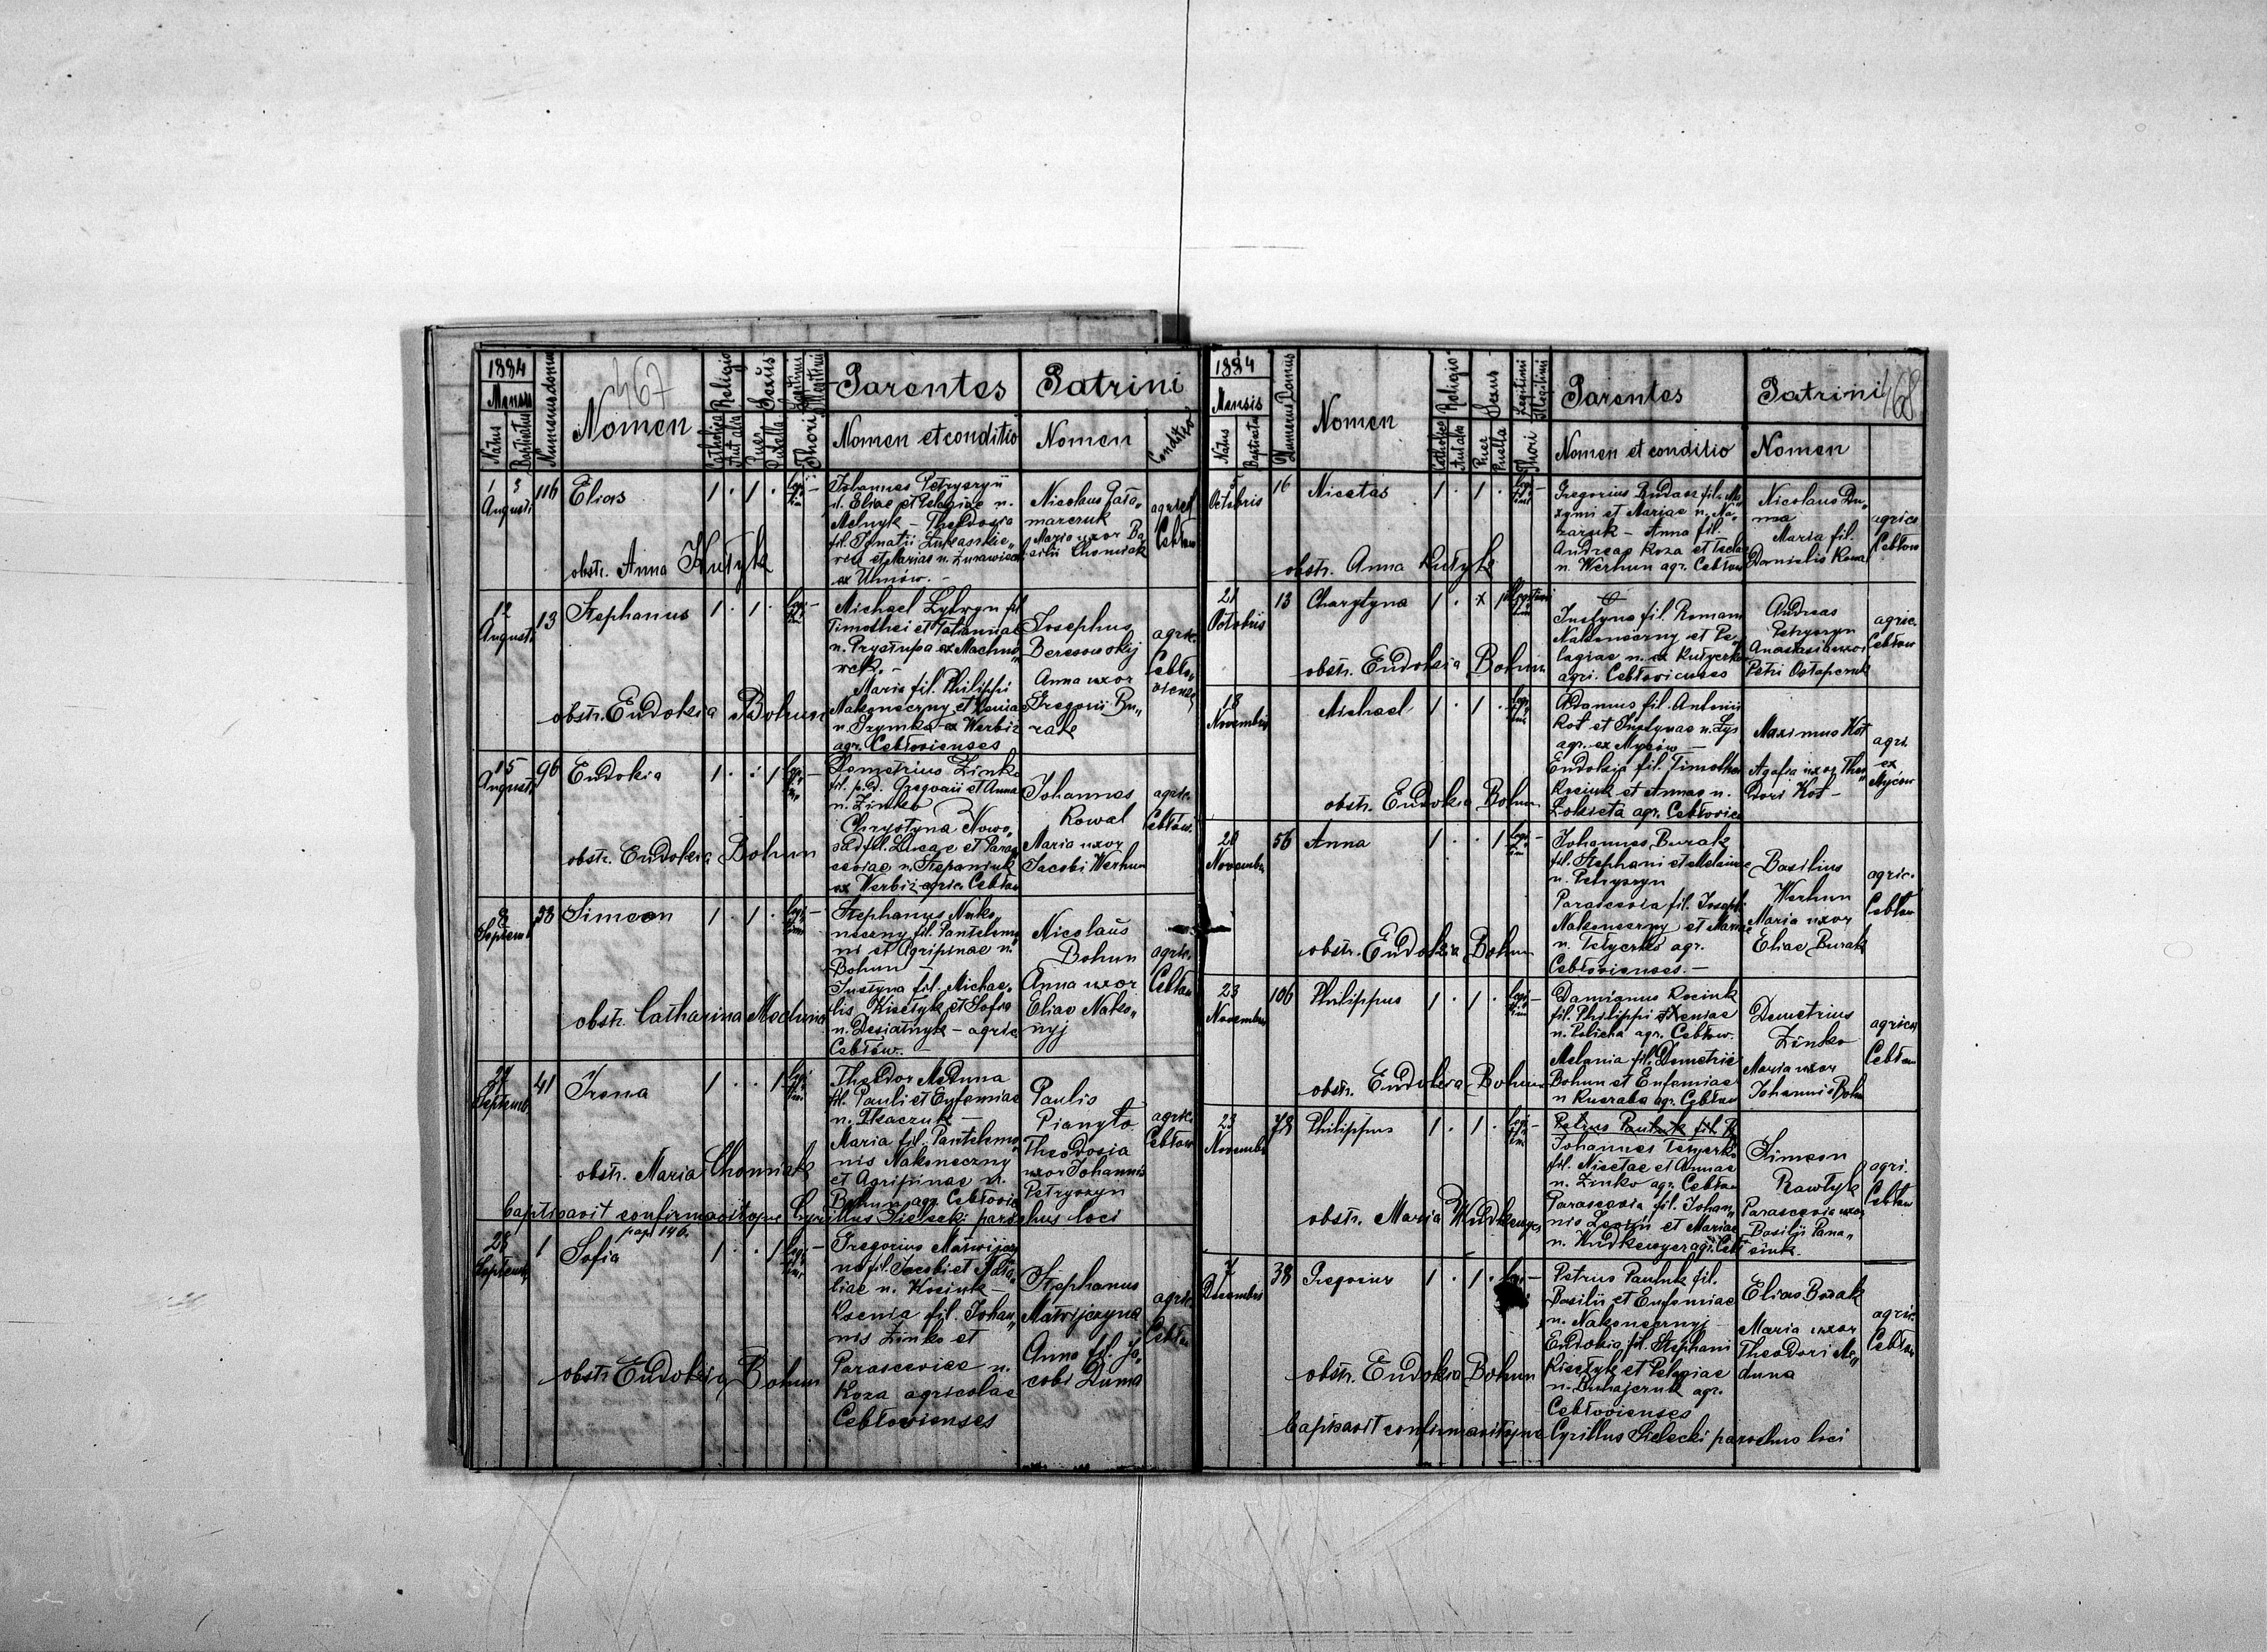 1884
Mensis
Natus
Baptisatus
Numerus domus
467
Nomen
Religio
Catholica
Aut alia
Sexus
Puer
Puella
Thori
Parentes
Nomen et conditio
Patrini
Nomen
Conditio
1 3
Augusti
116
Elias
1 . 1 .
obstr. Anna Kutyk
Johannes Petryszyn
fil. Eliae et Pelagiae n.
Melnyk – Theodosia
fil. Ignatii
et Marias n.
ex Uhnów. –
Nicolaus
marczuk
Maria uxor Ba
silii Chomiak
agric.
Cebłow
12
Augusti
13
Stephanus
1 . 1 .
obstr. Eudokia Bohun
Michael Lytwyn fil
Timothei et Tatiannae
n. Prystupa ex Machno„
wek. –
Maria fil. Philippi
Nakoneczny et Xenia
n. Szymka ex Werbiz
agr. Cebłovienses
Josephus
Beresowskij
Anna uxor
Gregorii Bu„
rak
agric.
Cebło„
vienses
15
Augusti
96
Eudokia
1 . . 1
obstr. Eudokia Bohun
Demetrius Zinko
fil. Gregorii et Anna
n. Zinko
Chrystyna Nowo„
sad fil. Lucae et Paras
ceviae n. Stepaniuk
ex Werbiz agric. Cebłow
Johannes
Kowal
Maria uxor
Jacobi Werhun
agric.
Cebłow.
8
Septem
38
Simeon
1 . 1 .
obstr. Catharina Meduna
Stephanus Nako„
neczny fil. Pantelemo
ni et Agripinae n.
Bohun –
Justyna fil. Michae„
lis Kisełyk et Sofia
n. Desiatnyk – agric.
Cebłów. –
Nicolaus
Bohun
Anna uxor
Eliae Nako„
nyj
agric.
Cebłow
27
Septemb.
41
Irena
1 . . 1
obstr. Maria Chomiak
Theodor Meduna
fil. Pauli et Eufemiae
n. Tkaczuk –
Maria fil. Pantelemo
nis Nakoneczny
et Agripinae n.
Bohun agr. Cebłovie
Paulis
Pianyło
Theodosia
uxor Johannis
Petryszyn
agric.
Cebłow
Baptisavit confirmavitque Cyrillus Sielecki parochus loci
28
Septemb
1
pag. 140.
Sofia
1 . . 1
obstr. Eudokia Bohun
Gregorius Matwijczy
na fil. Jacobi et Nata„
liae n. Kociuk –
Ksenia fil. Johan„
nis Zinko et
Parasceviae n.
Koza agricolae
Cebłovienses
Stephanus
Matwijczyna
Anna fil. Ja„
cobi Duma
agric.
Cebłow
1884
Mensis
Natus
Baptisatus
Numerus Domus
Nomen
Religio
Catholica
Aut alia
Sexus
Puer
Puella
Thori
Legitimi
Illegitimi
Parentes
Nomen et conditio
Patrini
468
Nomen
5
Octobris
16
Nicetas
1 . 1 .
obstr. Anna Kutyk
Gregorius Budasz fil. Ma„
xymi et Mariae n. Na„
zaruk – Anna fil.
Andreae Koza et Tecla
n. Werhun agr. Cebłow
Nicolaus Du„
ma
Maria fil.
Danielis Kowal
agric.
Cebłow
21
Octobris
13
Charytyna
1 . x 1
obstr. Eudokia Bohun
Justyna fil. Romani
Nakoneczny et Pe„
lagiae n.
agri. Cebłovienses
Andreas
Petryszyn
Anastasia uxor
Petri Ostapczuk
agric.
Cebłow
18
Novembris
Michael
1 . 1 .
obstr. Eudokia Bohun
Adamus fil. Antonii
Kot et Justynae n. Lys
agr. ex Mycow –
Eudokia fil. Timothei
Kociuk et Annae n.
Lokieta agr. Cebłovie
Maximus Kot
Agafia uxor Theo„
dori Kot –
agri.
ex
Myców
20
Novembr
56
Anna
1 . . 1
obstr. Eudokia Bohun
Johannes Burak
fil. Stephani et Melaniae
n. Petryszyn
Parascevia fil. Josephi
Nakoneczny et Mariae
n. Tetyczko agr.
Cebłovienses. –
Basilius
Werhun
Maria uxor
Eliae Burak
agric.
Cebłow
23
Novembris
106
Philippus
1 . 1 .
obstr. Eudokia Bohun
Damianus Kociuk
fil. Philippi et Xeniae
n. Policha agr. Cebłow.
Melania fil. Demetrii
Bohun et Eufemiae
n Kucraba agr. Cebłow
Demetrius
Zinko
Maria uxor
Johannis Bohu
agric.
Cebłow
23
Novembr
78
Philippus
1 . 1 .
obstr. Maria Wudkewycz
Petrus Pauluk fil. B
Johannes Tetyczko
fil. Nicetae et Annae
n. Zinko agr. Cebłow
Parascevia fil. Johan„
nis et Mariae
n. Wudkewycz agr. Cebł
Simeon
Kawtyk
Parascevia uxor
Basilii Pana„
siuk
agri.
Cebłow
7
Decembris
38
Gregorius
1 . 1 .
obstr. Eudokia Bohun
Petrus Pauluk fil.
Basilii et Eufemiae
n. Nakonecznyj –
Eudokia fil. Stephani
Kisełyk et Pelagiae
n. Buhajczuk agr.
Cebłovienses
Elias Burak
Maria uxor
Theodori Me„
duna
agric.
Cebłow
Baptisavit confirmavitque Cyrillus Sielecki parochus loci